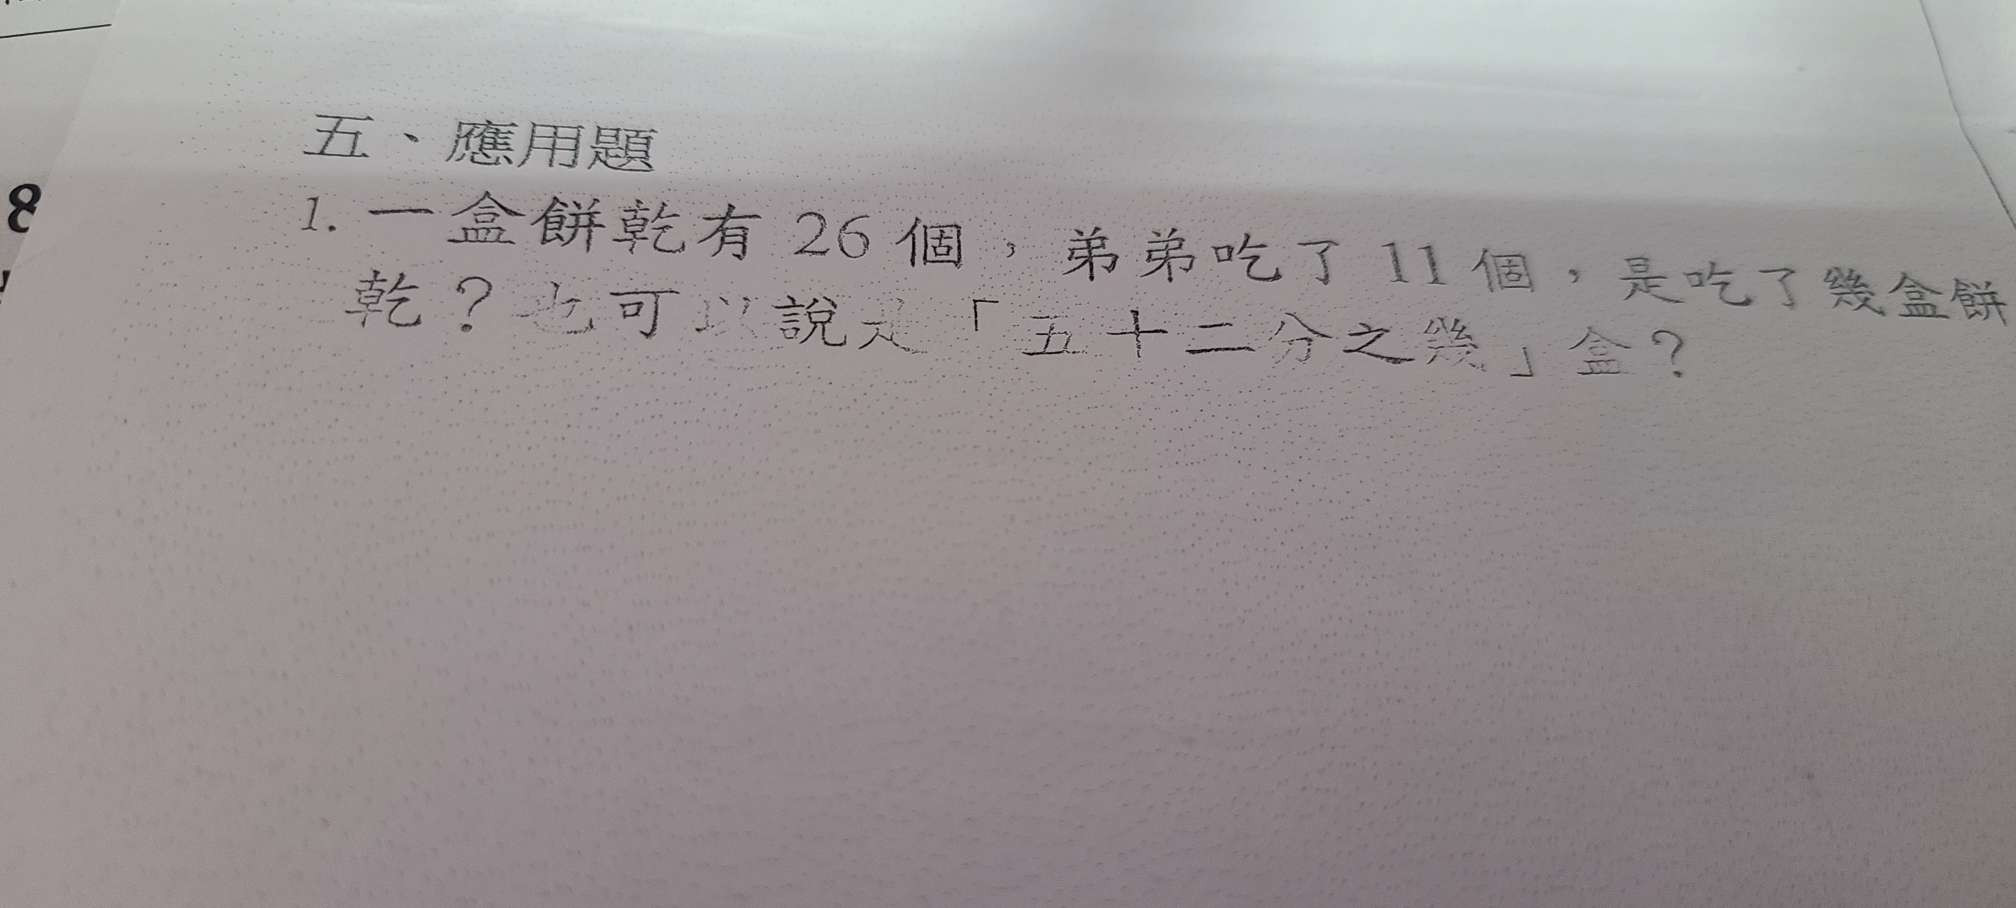 五、應用題
8
1. 一盒餅乾有 26 個，弟弟吃了 11 個，是吃了幾盒餅
乾？也可以說是「五十二分之幾」盒？